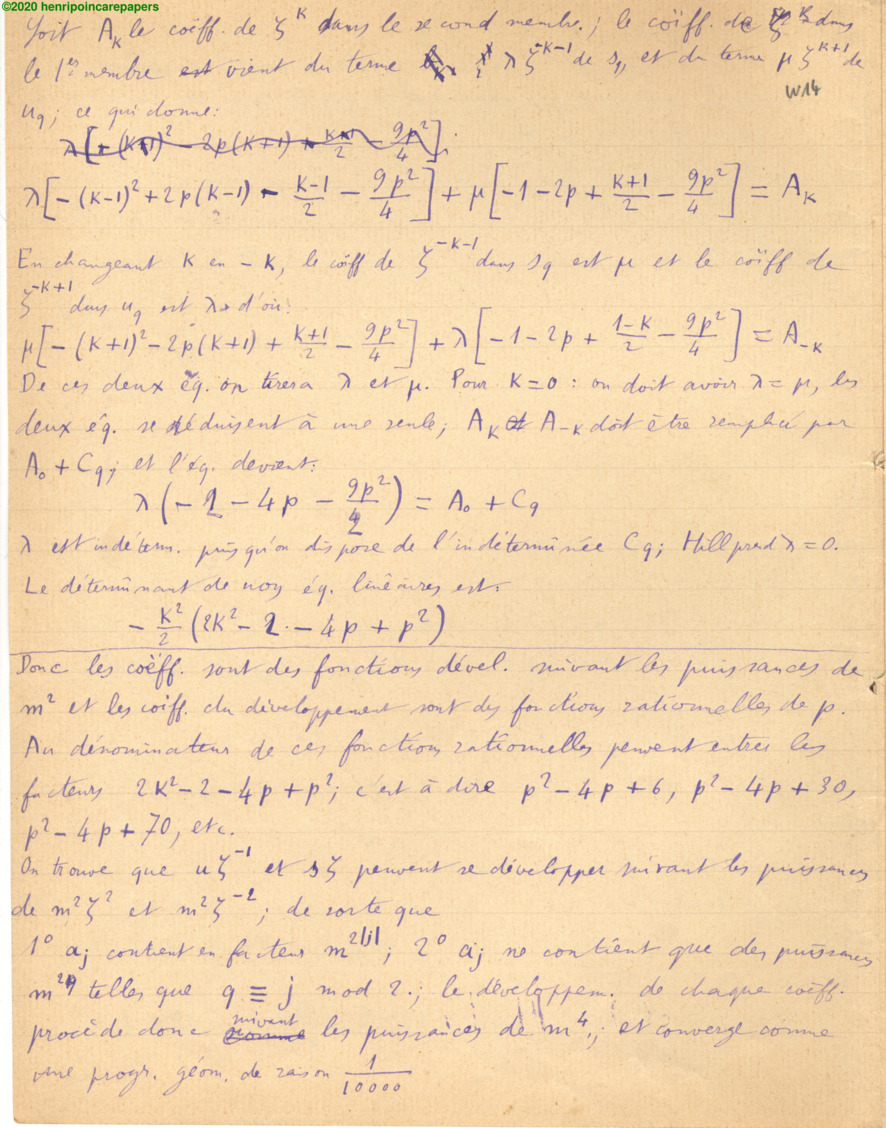 ©2020 henripoincarepapers
Soit A_K le coëff. de ζ^K dans le second membre.; le coëff. de ζ^K dans
le 1er membre est vient du terme λ ζ^{-K-1} de s_q, et du terme μ ζ^{K+1} de
W14
u_q; ce qui donne:
λ[-(K-1)^2 + 2p(K-1) - \frac{K-1}{2} - \frac{9p^2}{4}] + μ[-1-2p + \frac{K+1}{2} - \frac{9p^2}{4}] = A_K
En changeant K en -K, le coëff de ζ^{-K-1} dans s_q est μ et le coëff de
ζ^{-K+1} dans u_q est λ d'où:
μ[-(K+1)^2 - 2p(K+1) + \frac{K+1}{2} - \frac{9p^2}{4}] + λ[-1-2p + \frac{1-K}{2} - \frac{9p^2}{4}] = A_{-K}
De ces deux éq. on tirera λ et μ. Pour K=0: on doit avoir λ=μ, les
deux éq. se réduisent à une seule; A_K et A_{-K} doit être remplacé par
A_0 + C_q; et l'éq. devient:
λ(-1 - 4p - \frac{9p^2}{2}) = A_0 + C_q
λ est indéterm. puisqu'on dispose de l'indéterminée C_q; Hill prend λ=0.
Le déterminant de nos éq. linéaires est:
-\frac{K^2}{2}(2K^2 - 2 - 4p + p^2)
Donc les coëff. sont des fonctions dével. suivant les puissances de
m^2 et les coëff. du développement sont des fonctions rationnelles de p.
Au dénominateur de ces fonctions rationnelles peuvent entrer les
facteurs 2K^2-2-4p+p^2; c'est à dire p^2-4p+6, p^2-4p+30,
p^2-4p+70, etc.
On trouve que uζ^{-1} et sζ peuvent se développer suivant les puissances
de m^2ζ^2 et m^2ζ^{-2}; de sorte que
1° a_j contient en facteur m^{2|j|}; 2° a_j ne contient que des puissances
m^{2q} telles que q ≡ j mod 2.; le développem. de chaque coëff.
procède donc suivant les puissances de m^4.; et converge comme
une progr. géom. de raison \frac{1}{10000}